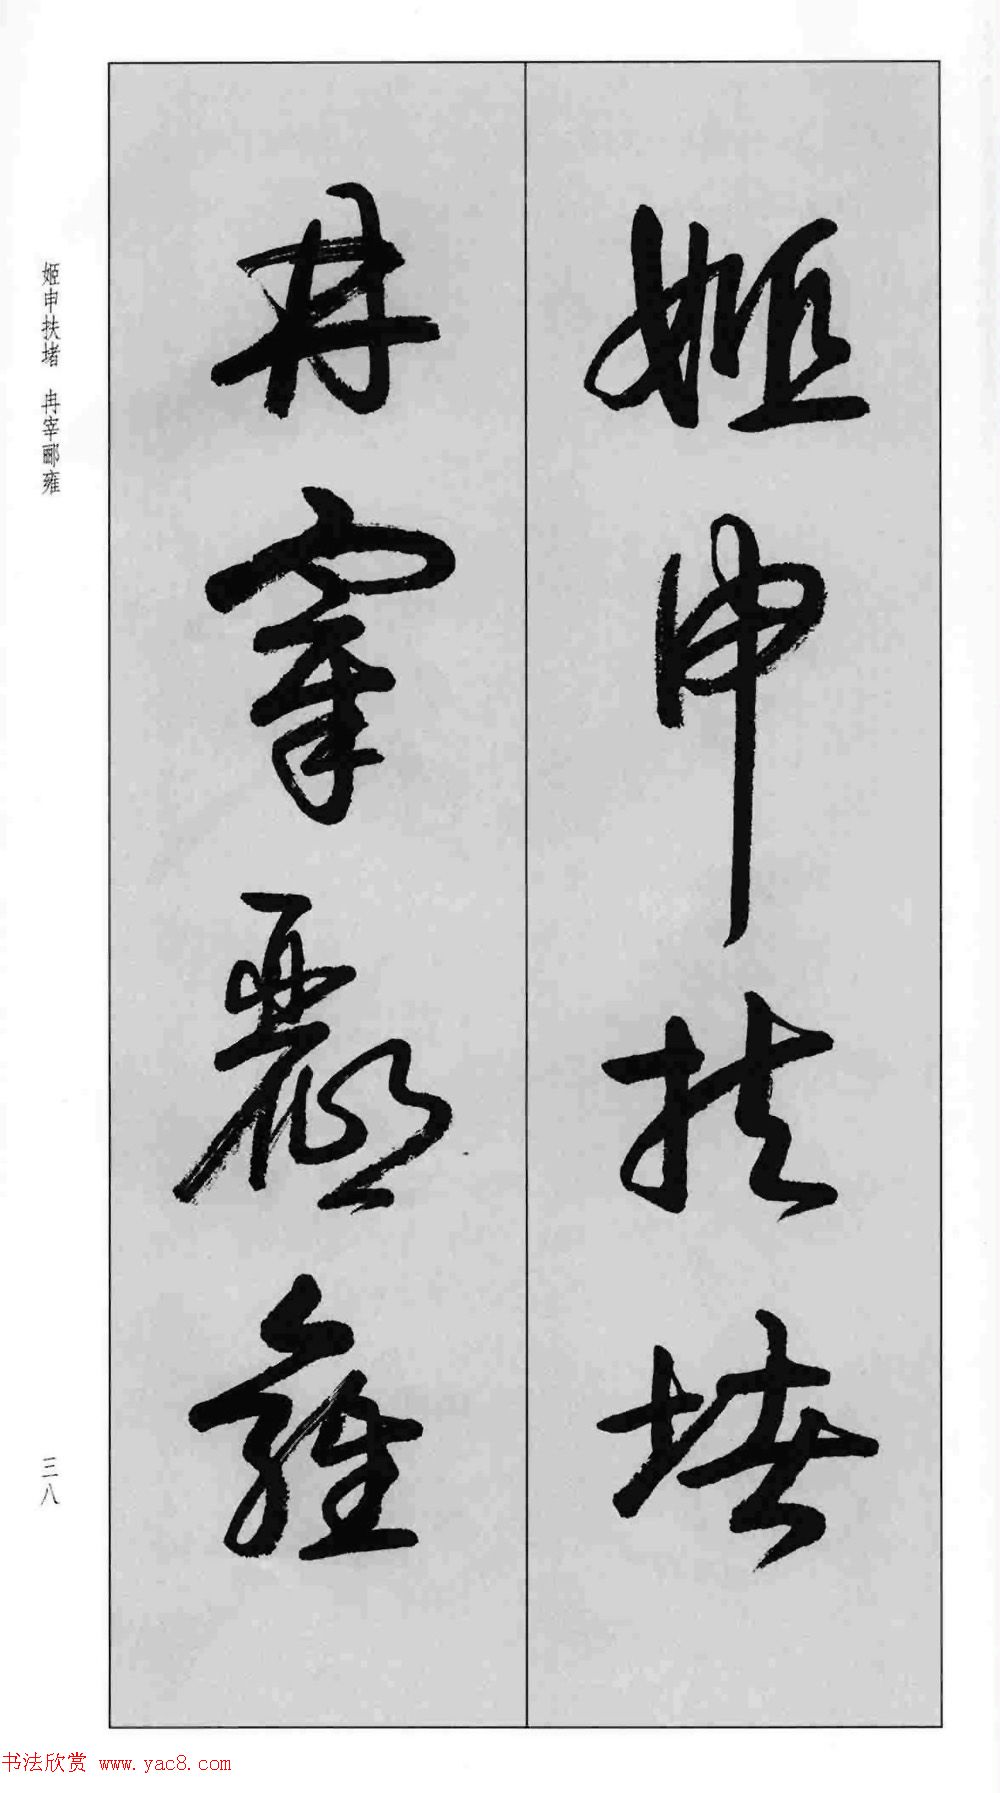 姬申扶堵
冉宰郦雍
姬申扶堵　冉宰郦雍
三八
书法欣赏 www.yac8.com